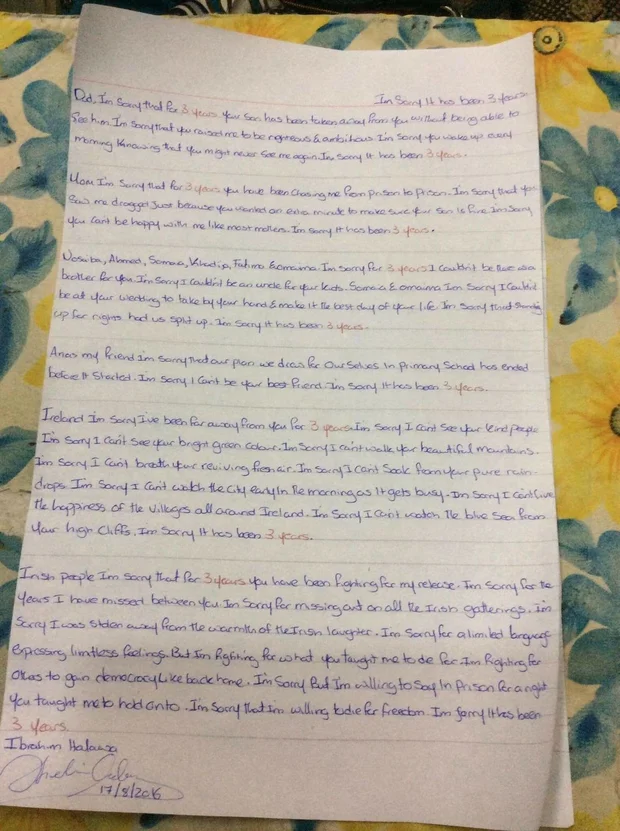 Im Sorry It has been 3 years.
Dad, I'm Sorry that for 3 years your Son has been taken away from you without being able to
See him. I'm Sorry that you raised me to be righteous & ambitious. I'm Sorry you wake up every
morning Knowing that you might never See me again. I'm Sorry It has been 3 years.
Mom I'm Sorry that for 3 years you have been chasing me from prison to Prison. I'm Sorry that you
Saw me dragged Just because you wanted an extra minute to make sure your Son is fine. I'm Sorry
you can't be happy with me like most mothers. I'm Sorry It has been 3 years.
Nosaiba, Ahmed, Somaia, Khadija, Fatima & omaima. I'm Sorry for 3 years I Couldn't be there as a
brother for you. I'm Sorry I couldn't be an uncle for your kids. Somaia & omaima I'm Sorry I Couldn't
be at your wedding to take by your hand & make it the best day of your life. I'm Sorry that Standing
up for rights had us split up. I'm Sorry It has been 3 years.
Anas my friend I'm Sorry that our plan we draw for Our Selves In Primary School has ended
before It Started. I'm Sorry I Can't be your best friend. I'm Sorry It has been 3 years.
Ireland I'm Sorry I've been far away from you for 3 years. I'm Sorry I can't see your kind people
I'm Sorry I Can't see your bright green colour. I'm Sorry I can't walk your beautiful mountains.
I'm Sorry I Can't breath your reviving fresh air. I'm Sorry I Can't Soak from your pure rain-
drops. I'm Sorry I can't watch the City early In the morning as It gets busy. I'm Sorry I can't
the happiness of the villages all around Ireland. I'm Sorry I can't watch the blue Sea from
your high Cliffs. I'm Sorry It has been 3 years.
Irish people I'm Sorry that for 3 years you have been fighting for my release. I'm Sorry for the
years I have missed between you. I'm Sorry for missing out on all the Irish gatherings. I'm
Sorry I was Stolen away from the warmth of the Irish laughter. I'm Sorry for a limited language
expressing limitless feelings. But I'm fighting for what you taught me to die for. I'm fighting for
others to gain democracy like back home. I'm Sorry but I'm willing to Stay In Prison for a right
you taught me to hold onto. I'm Sorry that I'm willing to die for freedom. I'm Sorry It has been
3 years.
Ibrahim Halawa
17/8/2016